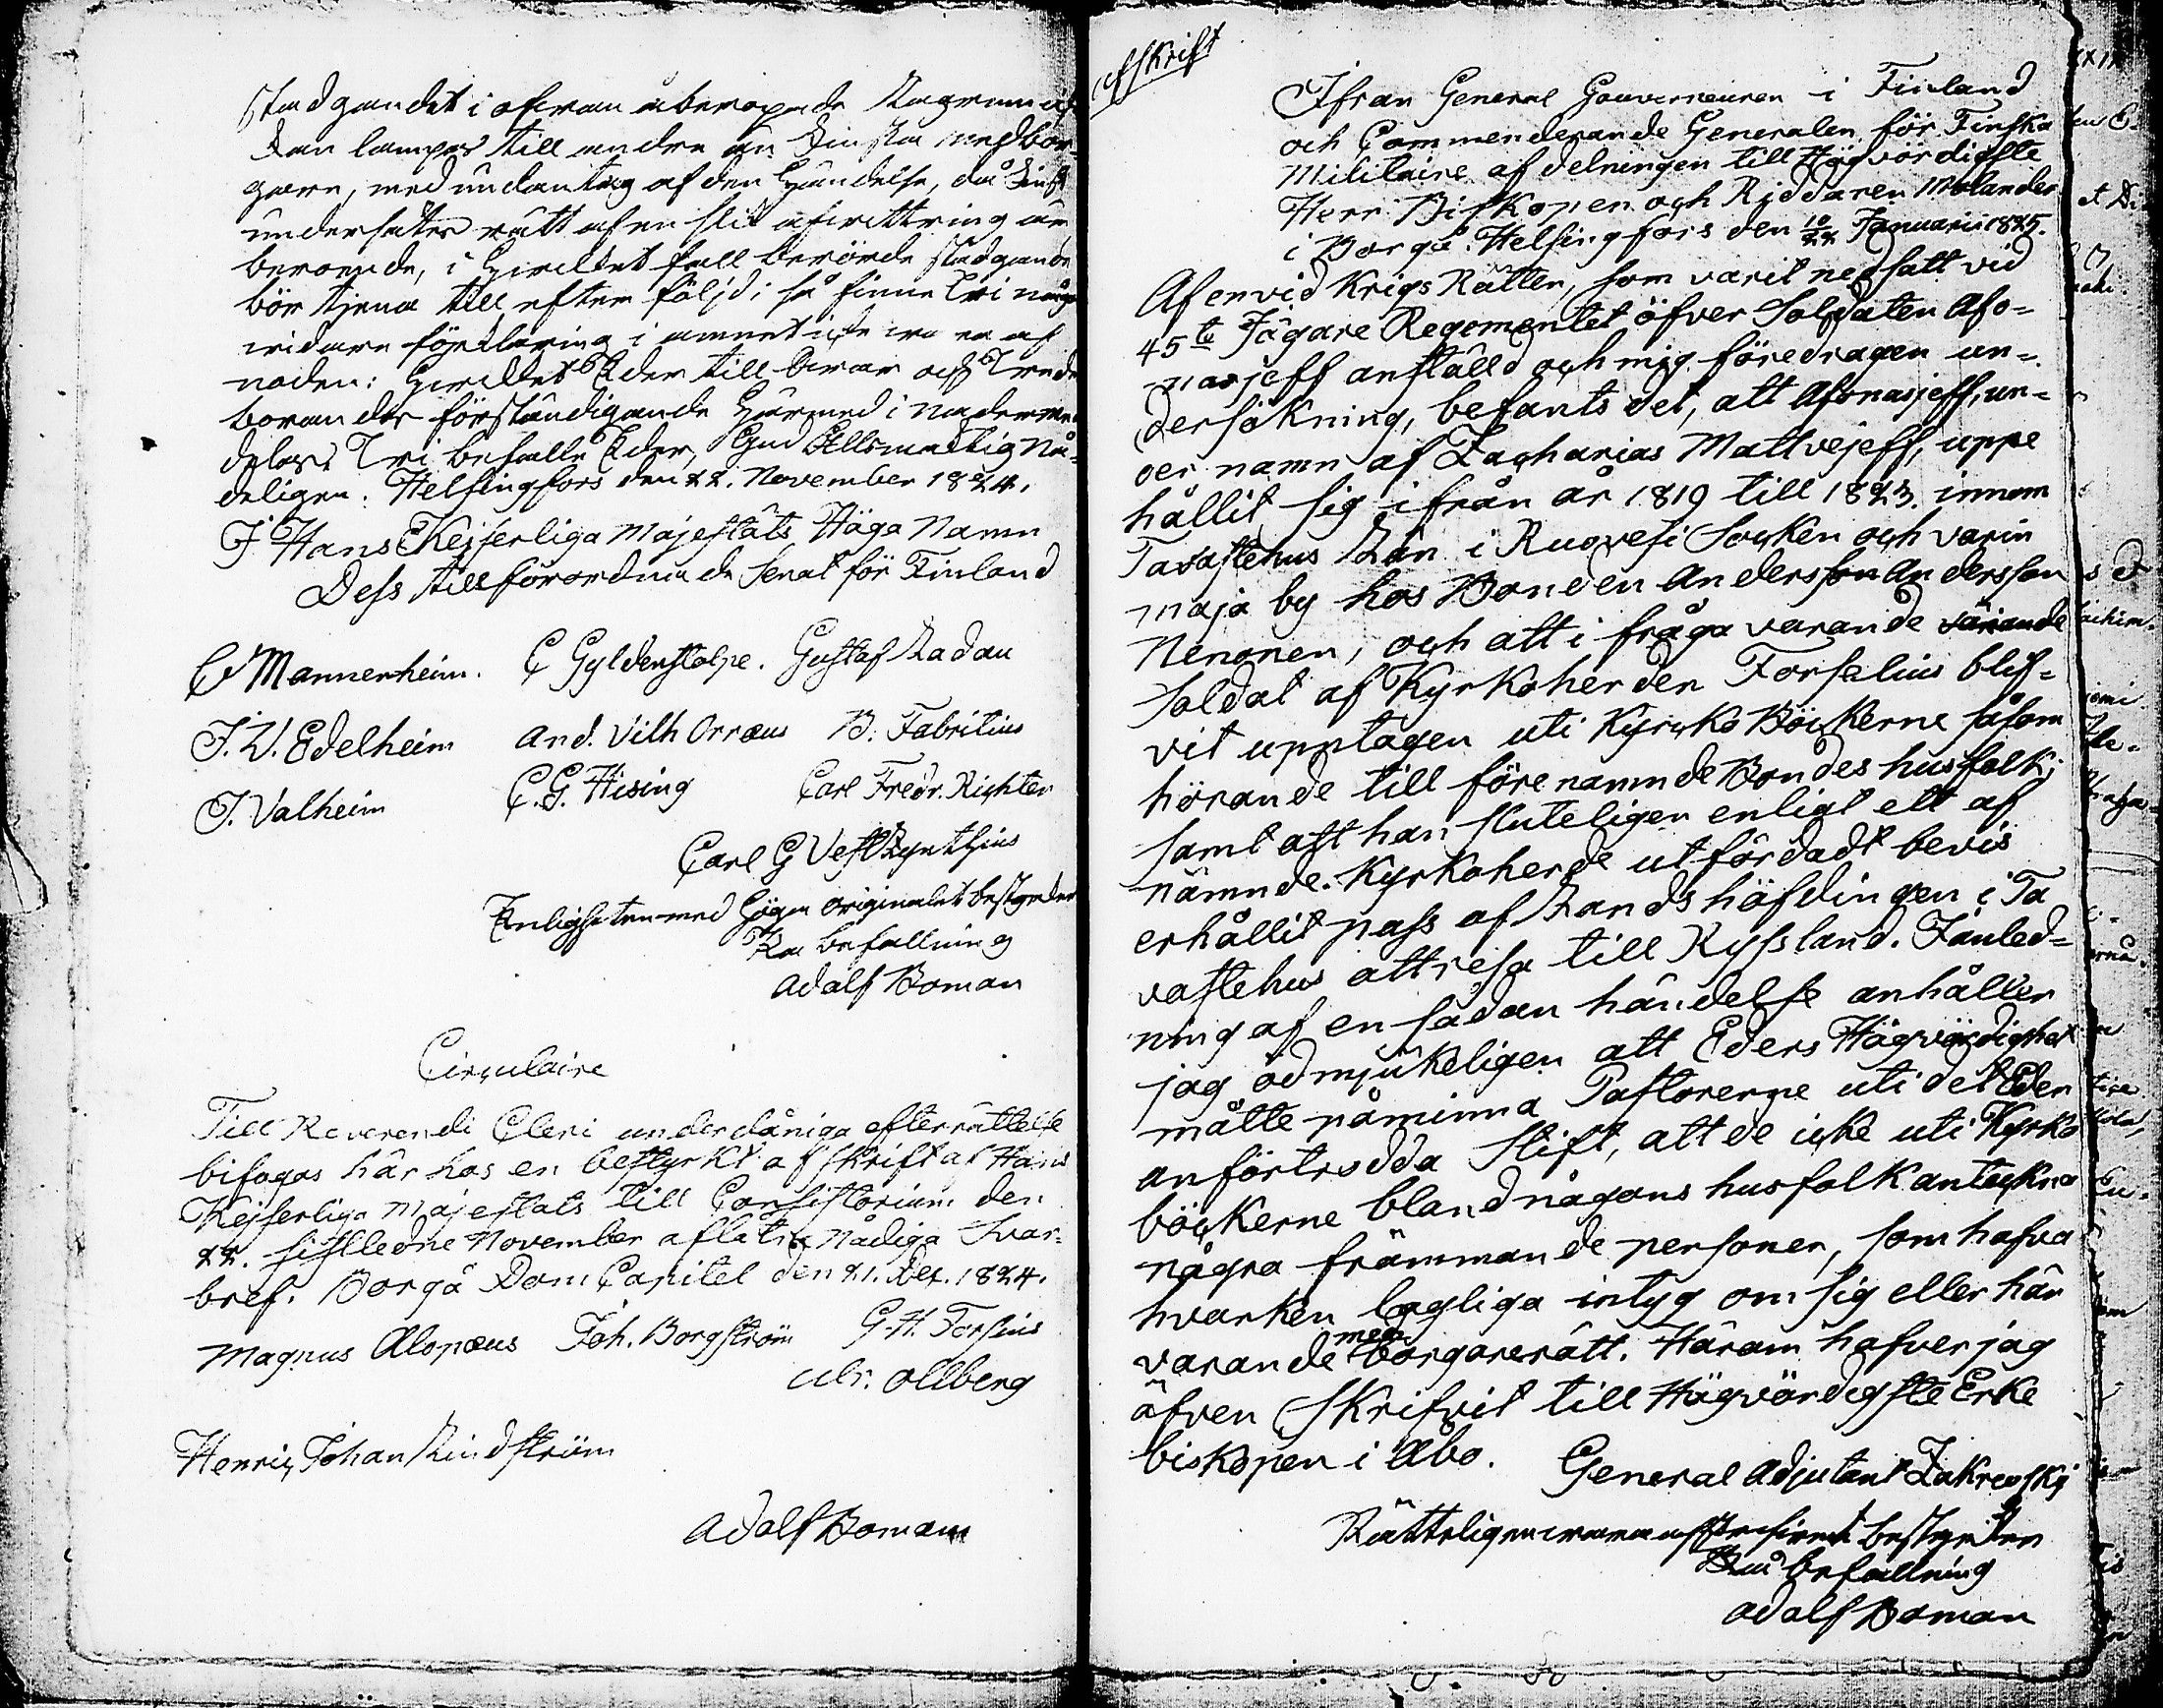 Stadgandet i ofvan åberopade
kan lämpas till andra än Finska medbor-
gare, med undantag af den händelse, då Finsk
undersåtes rätt af en slik afvittring är
beroende, i hvilket fall berörde stadgande
bör tjena till efterföljd; så finne Wi någon
vidare förklaring i ämnet icke vara af
nöden: Hvilket Eder till svar och Wede
börandes förständigande härmed i nåder med
delas. Wi befalle Eder Gud Allsmäktig Nå-
deligen. Helsingfors den 22. November 1824.
I Hans Kejserliga Majestäts Höga Namn
Dess tillförordnade Senat för Finland
C Mannerheim. C Gyldenstolpe. Gustaf Ladau
J. W. Edelheim And. Vilh Orræus B. Fabritius
J. Valheim C. G. Hising Carl Fredr. Richter
Carl G Vestzynthius
Enligheten med höga originalet bestyrker
På befallning
Adolf Boman
Circulaire
Till Reverendi Cleri underdåniga efterrättelse
bifogas här hos en bestyrkt afskrift af Hans
Kejserliga Majestäts till Consistorium den
22. sistledne November aflåtna Nådiga Svar-
bref. Borgå Dom Capitel den 21. Dec. 1824.
Magnus Alopæus Joh. Borgström G. H. Forsius
Ulr. Ollberg
Henric Johan Lindström
Adolf Boman
Afskrift
Ifrån General Gouverneuren i Finland
och Commenderande Generalen för Finska
Militaire afdelningen till Högvördigste
Herr Biskopen och Riddaren Molander
i Borgå. Helsingfors den 10/22 Januarii 1825.
Af en vid Krigs Rätten, som varit nedsatt vid
45te Jägare Regementet öfver Soldaten Afo-
nasjeff anställd och mig föredragen un-
dersökning, befants det, att Afonasjeff, un-
der namn af Zacharias Mattvejeff, uppe
hållit sig ifrån år 1819 till 1823. innom
Tavastehus Län i Ruovesi Socken och Varin
maja by hos Bonden Andersson Andersson
Nenonen, och att i fråga varande varande
Soldat af Kyrkoherden Forselius blif-
vit upptagen uti Kyrcko Böckerne såsom
hörande till förenämnde Bondes husfolk;
samt att han sluteligen enligt ett af
nämnde Kyrkoherde utfärdadt bevis
erhållit pass af Landshöfdingen i Ta
vastehus att resa till Ryssland. I anled-
ning af en sådan händelse anhåller
jag ödmjukeligen att Eders Högvördighet
måtte påminna Pastorerne uti det Eder
anförtrodda Stift, att de icke uti Kyrko
böckerne bland någons husfolk anteckna
några främmande personer, som hafva
hvarken lagliga intyg om sig eller här
varande medborgarerätt. Härom hafver jag
äfven skrifvit till Högvördigste Erke
biskopen i Åbo.
General Adjutant Zakrevskij
Rätteligen vara afskrifvit bestyrker
På befallning
Adolf Boman